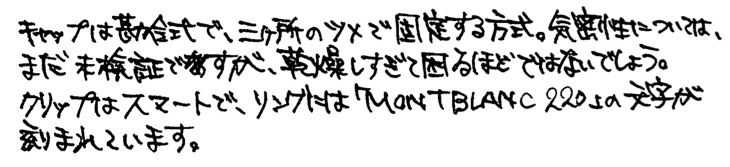 キャップは勘合式で、三ヶ所のツメで固定する方式。気密性については、
まだ未検証ですが、乾燥しすぎて困るほどではないでしょう。
クリップはスマートで、リングには「MONTBLANC 220」の文字が
刻まれています。